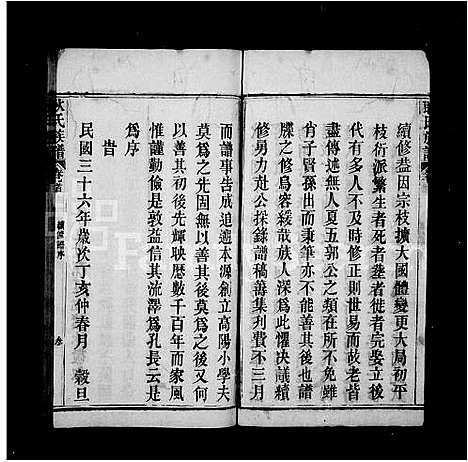 續修葢因宗枝擴大國體變更大局初平
枝衍派繁生者死者塟者徙者完娶立後
代有多人不及時修正則世易而故老皆
盡傳述無人夏五郭公之類在所不免雖
肖子賢孫出而秉筆亦不能善其後也譜
牒之修烏容緩哉族人深爲此懼决議續
修男力姓公採錄譜稿善集刋費不三月
而譜事告成追遡本源創立高陽小學夫
莫爲之先固無以善其始莫爲之後又何
以善其初後先輝映歷數千百年而家風
惟謹勤儉是敦益信其流澤爲孔長云是
爲序
旹
民國三十六年歲次丁亥仲春月 穀旦
耿氏族譜 卷首 續修譜序